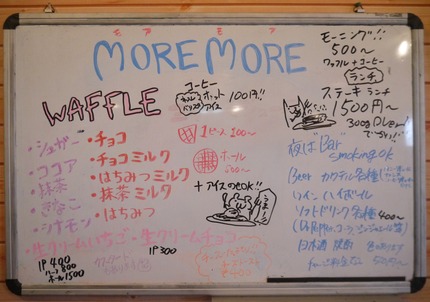 モア モア
MOREMORE
モーニング!!
500〜
ワッフル+コーヒー
ランチ
ステーキランチ
1500円〜
300g
コーヒー
ホット
アイス
100円!!
WAFFLE
・シュガー
・ココア
・抹茶
・きなこ
・シナモン
・チョコ
・チョコミルク
・はちみつミルク
・抹茶ミルク
・はちみつ
・生クリームいちご
・生クリームチョコ
1ピース 200〜
ホール
+アイスのせOK!!
1P 400
ハーフ 800
ホール 1500
1P 300
夜は"Bar"
smoking ok
Beer カクテル各種
ワイン ハイボール
ソフトドリンク各種 400〜
日本酒 焼酎